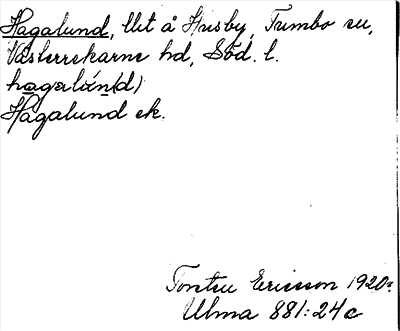 Hagalund, llit å Husby, Tumbo sn,
Västerrekarne hd, Söd. l.
hagalún(d)
Hagalund ek.
Torsten Ericsson 1920.
Ulma 881:24c